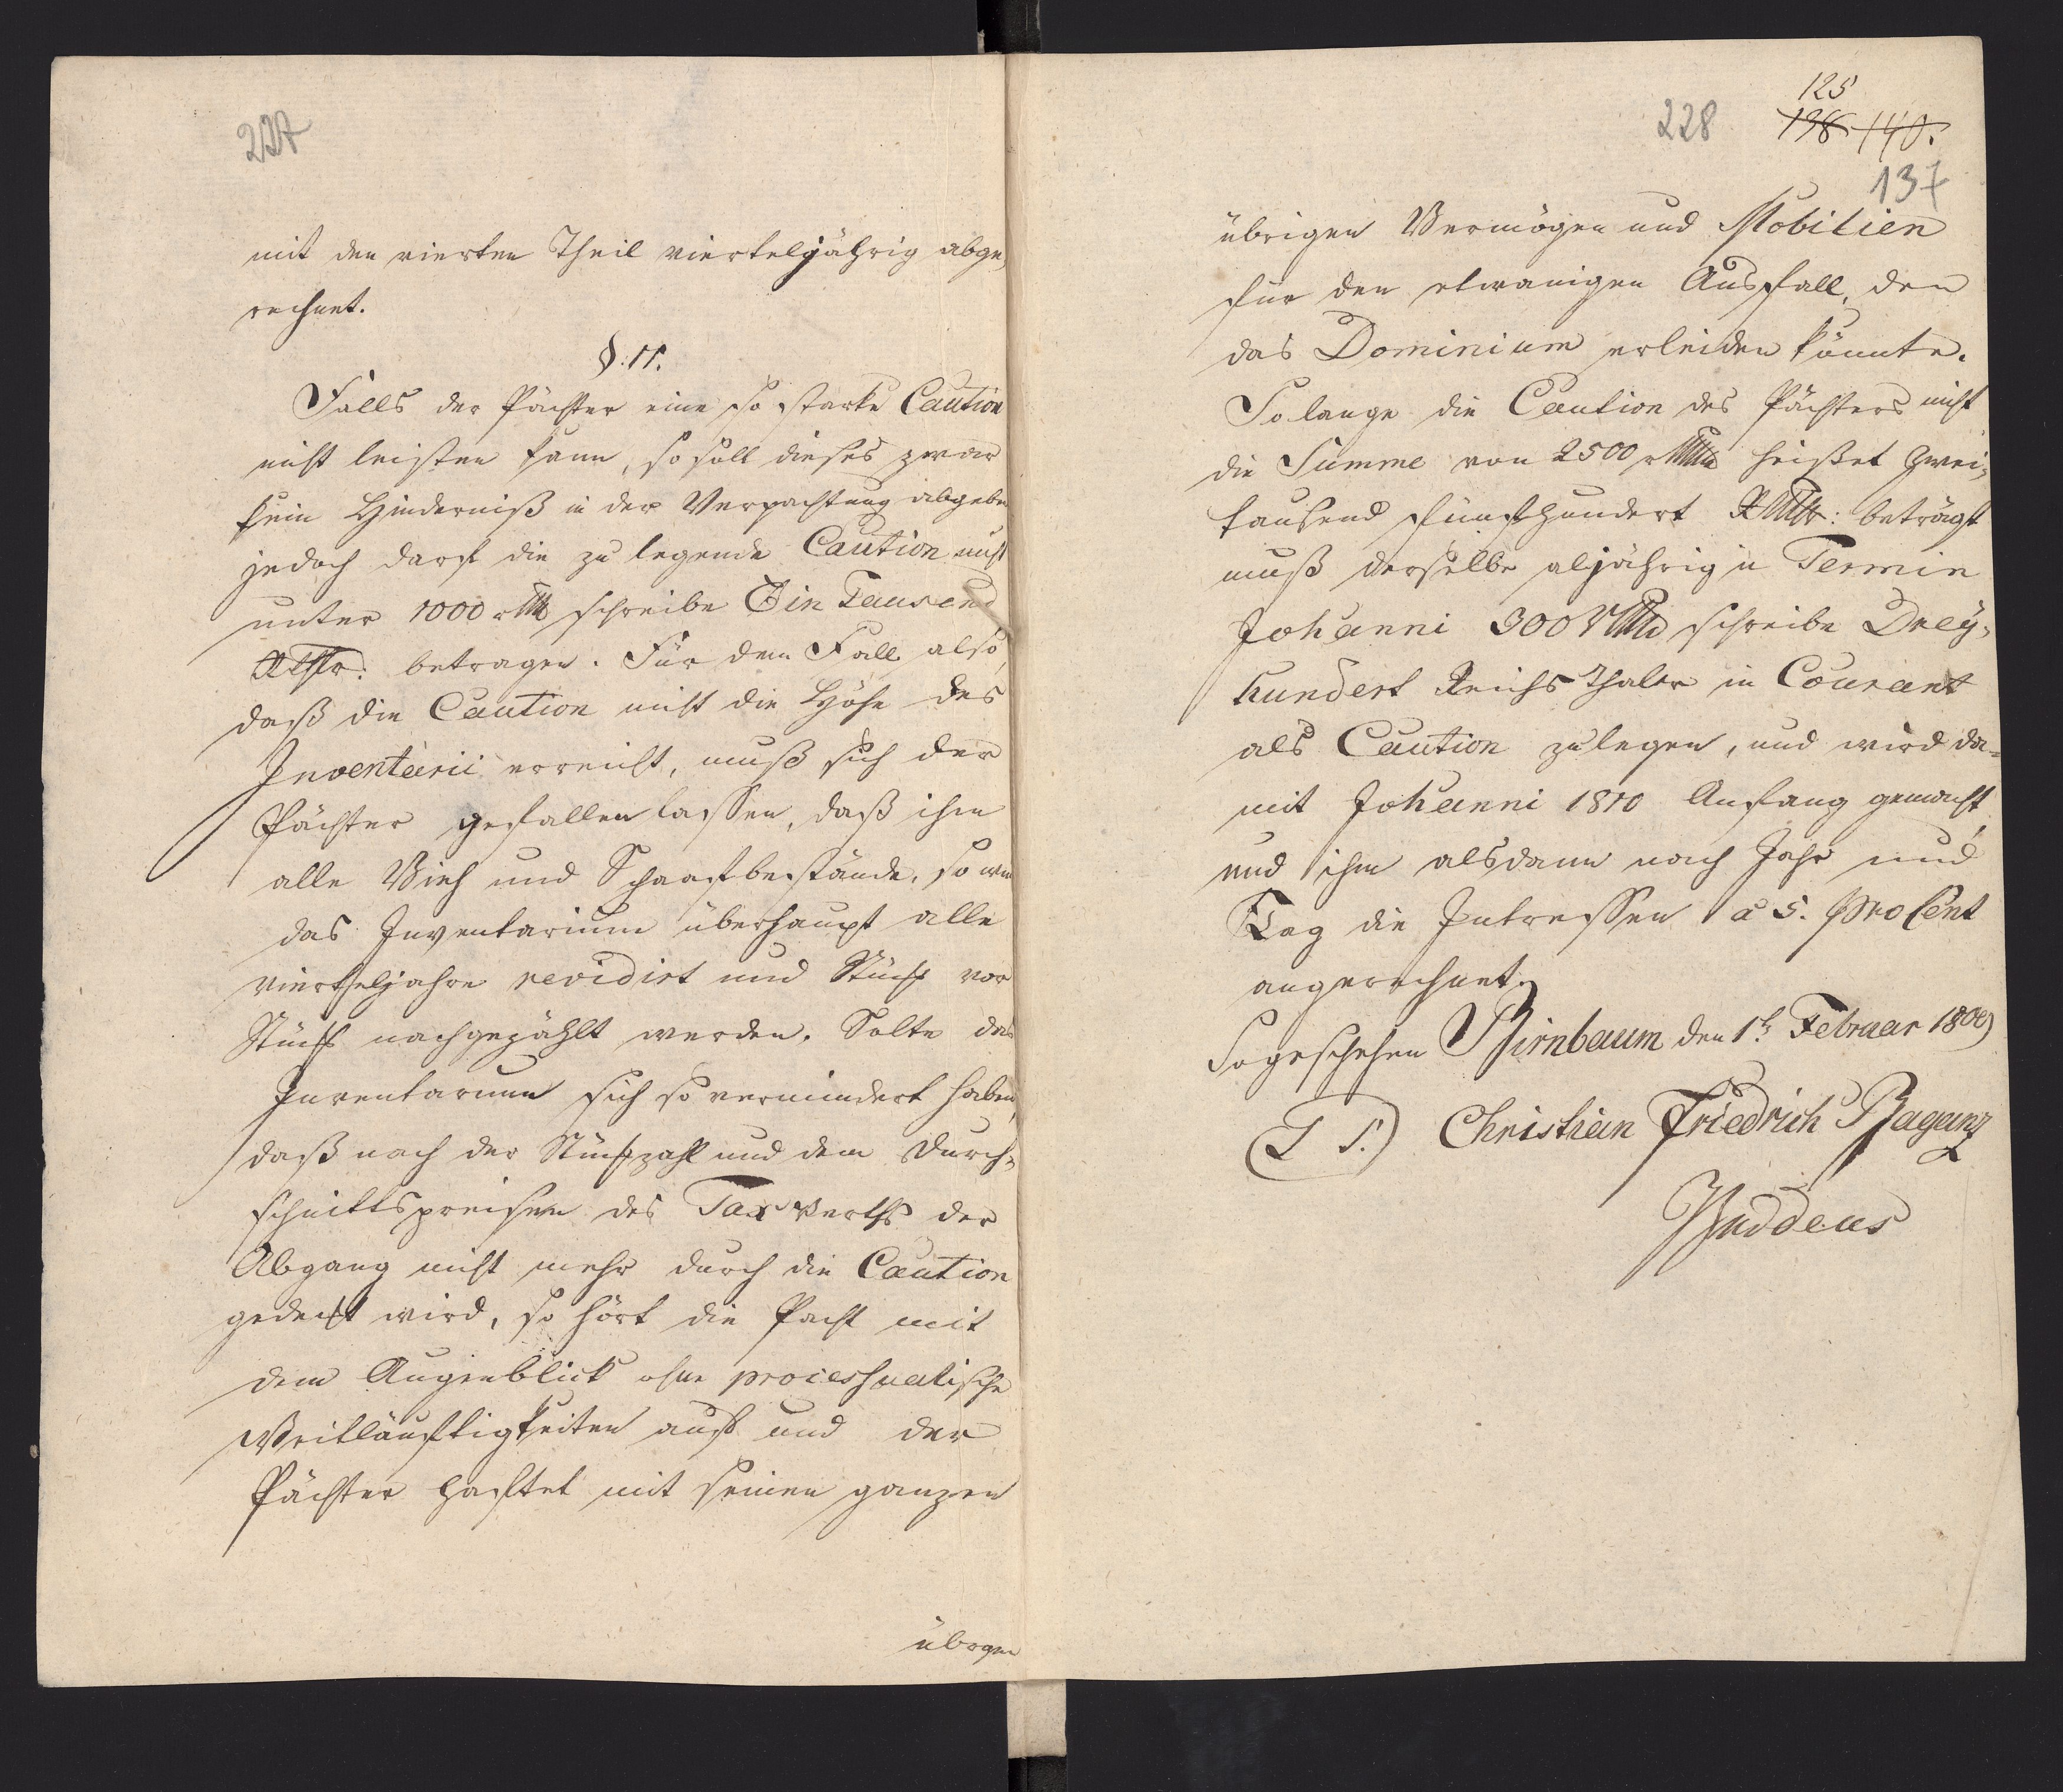 227
mit den vierten Theil vierteljährig abge,
rechnet.
§. 11.
Falls der Pächter eine so starke Caution
nicht leisten kann, so soll dieses zwar
kein Hinderniß in der Verpachtung abgeben
jedoch darf die zu legende Caution nicht
unter 1000 rthl schreibe Ein Tausend
Rthlr: betragen. Für dem Fall also,
daß die Caution nicht die Höhe des
Inventarii erreicht, muß sich der
Pächter gefallen lassen, daß ihm
alle Vieh und Schaafbestände, so wie
das Inventarium überhaupt alle
viertheljahre revidirt und Stück vor
Stück nachgezählt werden. Solte das
Inventarium sich so vermindert haben,
daß nach der Stückzahl und dem Durch-
schnittspreisen des Tax Werths der
Abgang nicht mehr durch die Caution
gedeckt wird, so hört die Pacht mit
dem Augenblick ohne processualische
Weitläuftigkeiten auf und der
Pächter haftet mit seinen ganzen
übrgen
125
228 138. 140.
137
übrigen Vermögen und Mobilien
für den etwanigen Ausfall, den
das Dominium erleiden könnte.
So lange die Caution des Pächters nicht
die Summe von 2500 rthl heißet Zwei-
tausend fünfhundert Rthlr: beträgt
muß derselbe aljährig in Termin
Johanni 300 Rthl schreibe Drey-
hundert Reichs Thaler in Courant
als Caution zulegen, und wird da-
mit Johanni 1810 Anfang gemacht,
und ihm alsdann nach Jahr und
Tag die Intressen à 5. pro Cent
angerechnet.
So geschehen Birnbaum den 1t Februar 1809
(L S.) Christian Friedrich Baganz
Buddeus